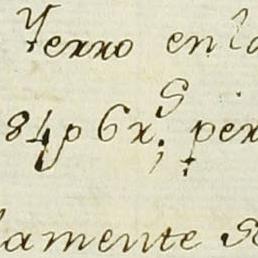 Yerro en la
84p 6rs; per
lamente se